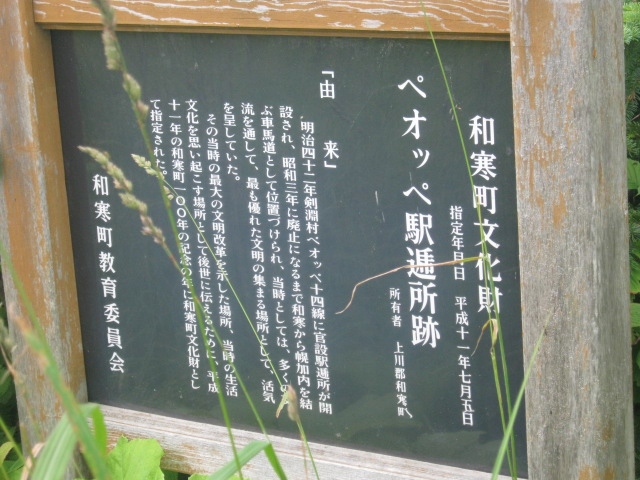 和寒町文化財
指定年月日 平成十一年七月五日
ペオッペ駅逓所跡
所有者 上川郡和寒町
「由来」
明治四十二年剣淵村ペオッペ十四線に官設駅逓所が開
設され、昭和三年に廃止になるまで和寒から幌加内を結
ぶ車馬道として位置づけられ、当時としては、多くの
流を通して、最も優れた文明の集まる場所として、活気
を呈していた。
その当時の最大の文明改革を示した場所、当時の生活
文化を思い起こす場所として後世に伝えるために、平成
十一年の和寒町一〇〇年の記念の年に和寒町文化財とし
て指定された。
和寒町教育委員会